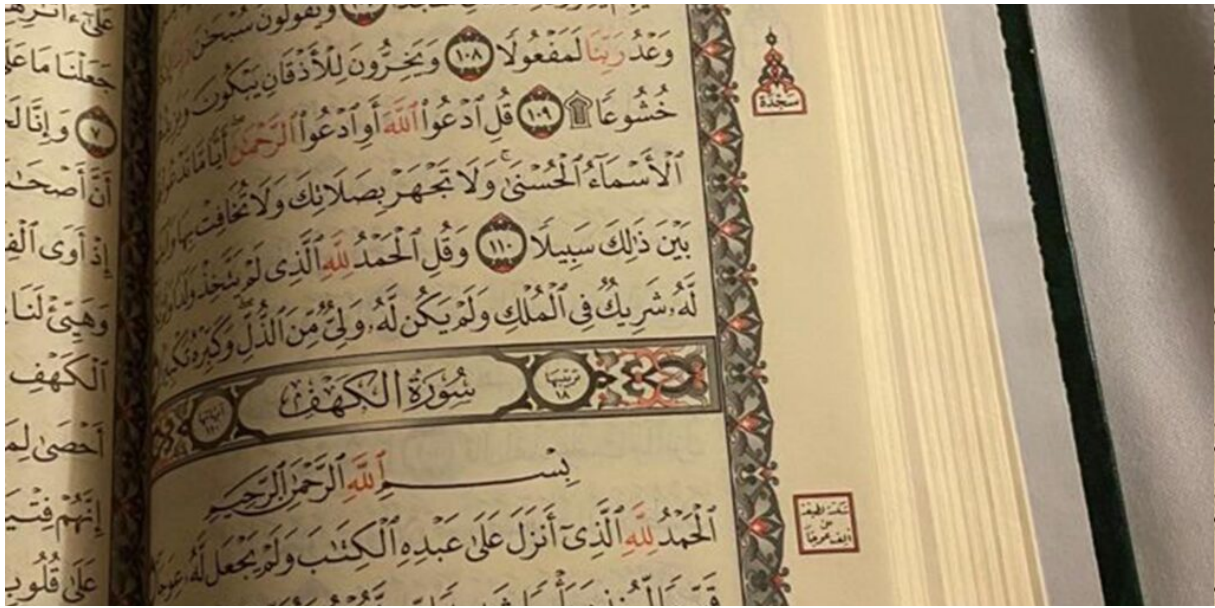 وَيَقُولُونَ سُبْحَٰنَ
وَعْدُ رَبِّنَا لَمَفْعُولًا ١٠٨ وَيَخِرُّونَ لِلْأَذْقَانِ يَبْكُونَ
خُشُوعًا ۩ ١٠٩ قُلِ ٱدْعُوا۟ ٱللَّهَ أَوِ ٱدْعُوا۟ ٱلرَّحْمَٰنَ أَيًّا مَّا تَدْعُوا۟
ٱلْأَسْمَآءُ ٱلْحُسْنَىٰ ۚ وَلَا تَجْهَرْ بِصَلَاتِكَ وَلَا تُخَافِتْ بِهَا
بَيْنَ ذَٰلِكَ سَبِيلًا ١١٠ وَقُلِ ٱلْحَمْدُ لِلَّهِ ٱلَّذِى لَمْ يَتَّخِذْ وَلَدًا
لَّهُۥ شَرِيكٌ فِى ٱلْمُلْكِ وَلَمْ يَكُن لَّهُۥ وَلِىٌّ مِّنَ ٱلذُّلِّ ۖ وَكَبِّرْهُ تَكْبِيرًا
ترتيبها ١٨ سُورَةُ الكَهْفِ آياتها ١١٠
بِسْمِ ٱللَّهِ ٱلرَّحْمَٰنِ ٱلرَّحِيمِ
ٱلْحَمْدُ لِلَّهِ ٱلَّذِىٓ أَنزَلَ عَلَىٰ عَبْدِهِ ٱلْكِتَٰبَ وَلَمْ يَجْعَل لَّهُۥ عِوَجَا
سَجْدَة
سكتة لطيفة
على
ألف عوجا
عَلَىٰٓ ءَاثَٰرِهِ
جَعَلْنَا مَا عَلَى
٧ وَإِنَّا لَجَ
أَنَّ أَصْحَٰبَ
إِذْ أَوَى ٱلْفِ
وَهَيِّئْ لَنَا
ٱلْكَهْفِ
أَحْصَىٰ لِمَ
إِنَّهُمْ فِتْيَ
عَلَىٰ قُلُوبِ